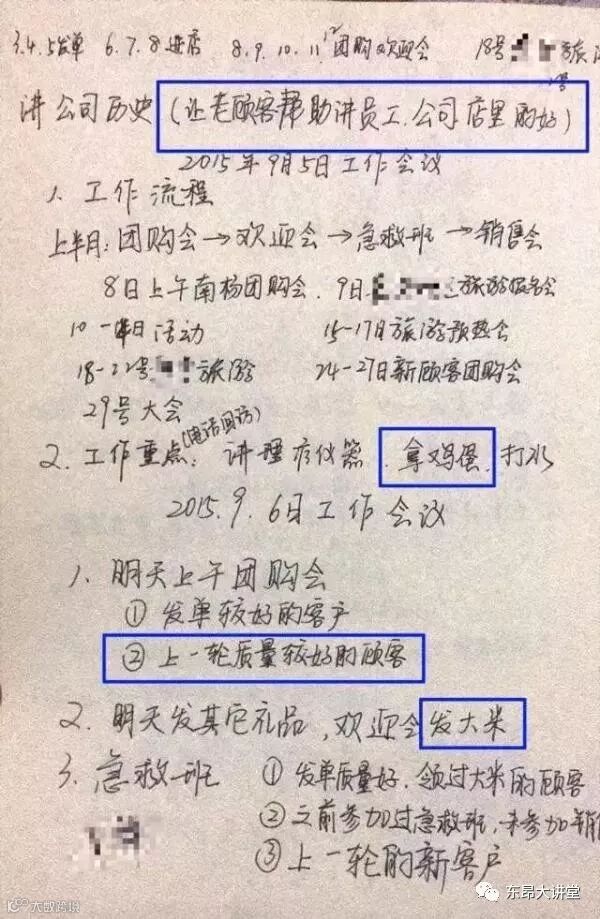 3.4.5发单 6.7.8进店 8.9.10.11.12团购欢迎会 18号 旅游
讲公司历史(让老顾客帮助讲员工、公司店里的好)
2015年9月5日工作会议
1、工作流程
上半月:团购会→欢迎会→急救班→销售会
8日上午南杨团购会、9日 旅游报名会
10-日活动 15-17日旅游预热会
18-22号 旅游 24-27日新顾客团购会
29号大会
(电话回访)
2、工作重点:讲理疗仪器、拿鸡蛋、打水
2015.9.6日工作会议
1、明天上午团购会
①发单较好的客户
②上一轮质量较好的顾客
2、明天发其它礼品,欢迎会发大米
3、急救班 ①发单质量好、领过大米的顾客
②之前参加过急救班,未参加销
③上一轮的新客户
大数跨境
东昂大讲堂